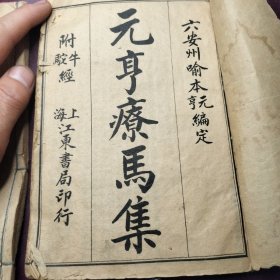 六安州喻本元亨編定
元亨療馬集
附牛駝經
上海江東書局印行